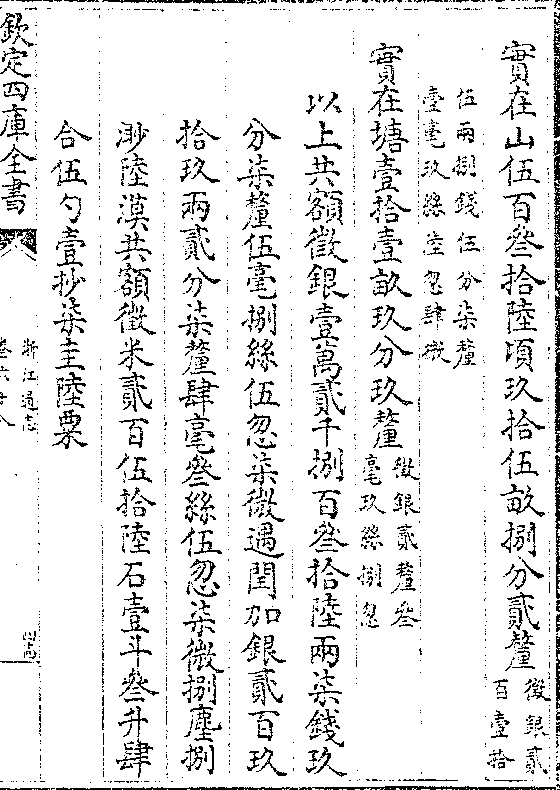 實在山伍百叄拾陸頃玖拾伍畝捌分貳釐徵銀貳百壹拾
伍兩捌錢伍分柒釐壹毫玖絲陸忽肆微
實在塘壹拾壹畝玖分玖釐徵銀貳釐叄毫玖絲捌忽
以上共額徵銀壹萬貳千捌百叄拾陸兩柒錢玖
分柒釐伍毫捌絲伍忽柒微遇閏加銀貳百玖
拾玖兩貳分柒釐肆毫叄絲伍忽柒微捌塵捌
渺陸漠共額徵米貳百伍拾陸石壹斗叄升肆
合伍勺壹抄柒圭陸粟
欽定四庫全書
浙江通志
卷六十八